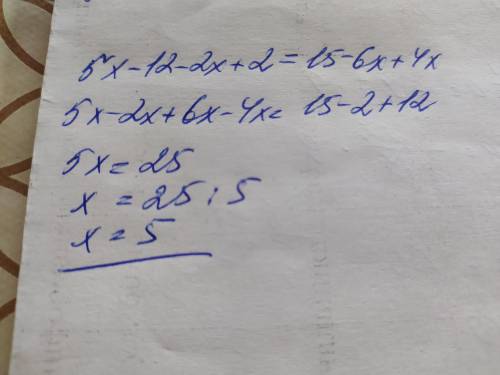 5x-12-2x+2=15-6x+4x
5x-2x+6x-4x=15-2+12
5x=25
x=25:5
x=5